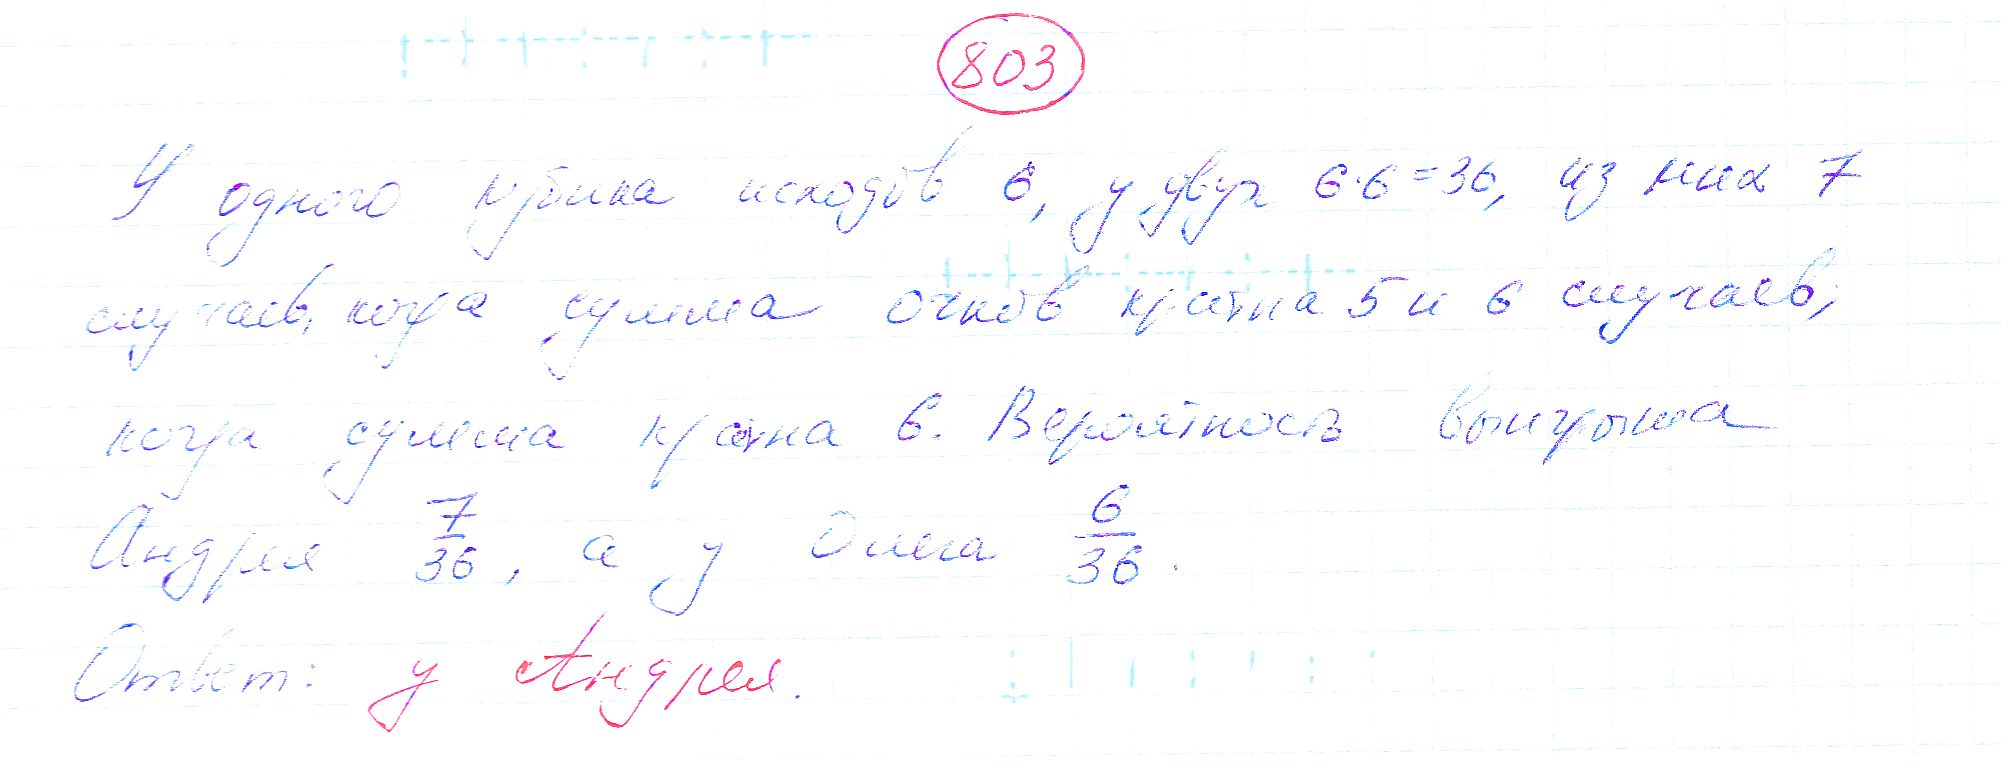 803
У одного кубика исходов 6, у двух 6·6=36, из них 7
случаев, когда сумма очков кратна 5 и 6 случаев,
когда сумма кратна 6. Вероятность выигрыша
Андрея 7/36, а у Олега 6/36.
Ответ: у Андрея.